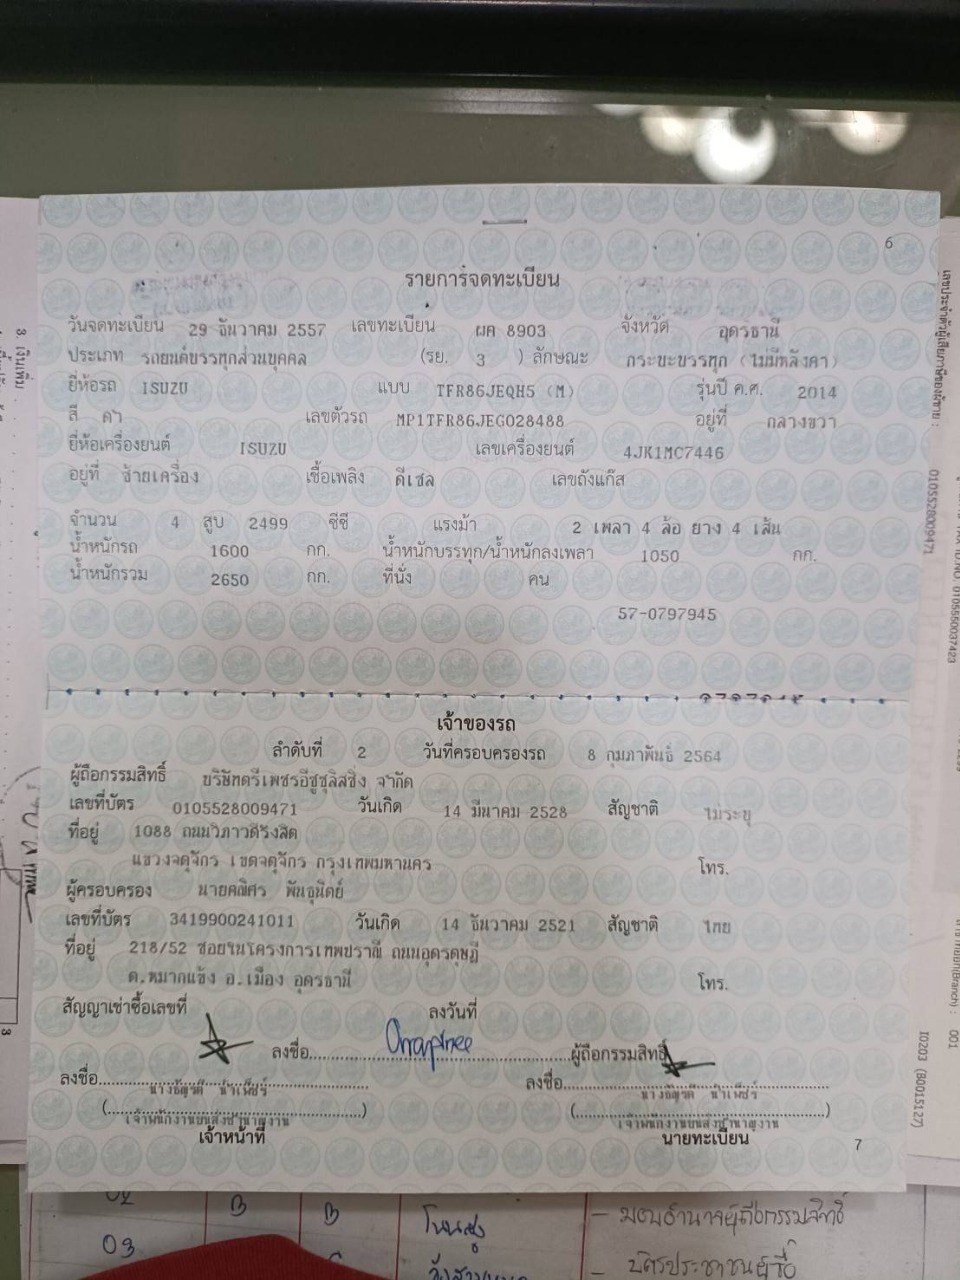 6
รายการจดทะเบียน
วันจดทะเบียน 29 ธันวาคม 2557 เลขทะเบียน ผค 8903 จังหวัด อุดรธานี
ประเภท รถยนต์บรรทุกส่วนบุคคล (รย. 3 ) ลักษณะ กระบะบรรทุก (ไม่มีหลังคา)
ยี่ห้อรถ ISUZU แบบ TFR86JEQH5 (M) รุ่นปี ค.ศ. 2014
สี ดำ เลขตัวรถ MP1TFR86JEG028488 อยู่ที่ กลางขวา
ยี่ห้อเครื่องยนต์ ISUZU เลขเครื่องยนต์ 4JK1MC7446
อยู่ที่ ซ้ายเครื่อง เชื้อเพลิง ดีเซล เลขถังแก๊ส
จำนวน 4 สูบ 2499 ซีซี แรงม้า 2 เพลา 4 ล้อ ยาง 4 เส้น
น้ำหนักรถ 1600 กก. น้ำหนักบรรทุก/น้ำหนักลงเพลา 1050 กก.
น้ำหนักรวม 2650 กก. ที่นั่ง คน
57-0797945
เจ้าของรถ
ลำดับที่ 2 วันที่ครอบครองรถ 8 กุมภาพันธ์ 2564
ผู้ถือกรรมสิทธิ์ บริษัทตรีเพชรอีซูซุลิสซิ่ง จำกัด
เลขที่บัตร 0105528009471 วันเกิด 14 มีนาคม 2528 สัญชาติ ไม่ระบุ
ที่อยู่ 1088 ถนนวิภาวดีรังสิต
แขวงจตุจักร เขตจตุจักร กรุงเทพมหานคร โทร.
ผู้ครอบครอง นายคณิศร พันธุนิตย์
เลขที่บัตร 3419900241011 วันเกิด 14 ธันวาคม 2521 สัญชาติ ไทย
ที่อยู่ 218/52 ซอยในโครงการเทพปราณี ถนนอุดรดุษฎี
ต.หมากแข้ง อ.เมือง อุดรธานี โทร.
สัญญาเช่าซื้อเลขที่ ลงวันที่
ลงชื่อ ผู้ถือกรรมสิทธิ์
ลงชื่อ ลงชื่อ
เจ้าพนักงานขนส่งชำนาญงาน เจ้าพนักงานขนส่งชำนาญงาน
เจ้าหน้าที่ นายทะเบียน
7
3. เงินเพิ่ม
3
เลขประจำตัวผู้เสียภาษีของผู้ขาย :
0105528009471
0105550037423
(Branch) : 001
I0203 (80015127)
02 B B โนนสูง - มอบอำนาจผู้ถือกรรมสิทธิ์
03 - บัตรประชาชนผู้ซื้อ